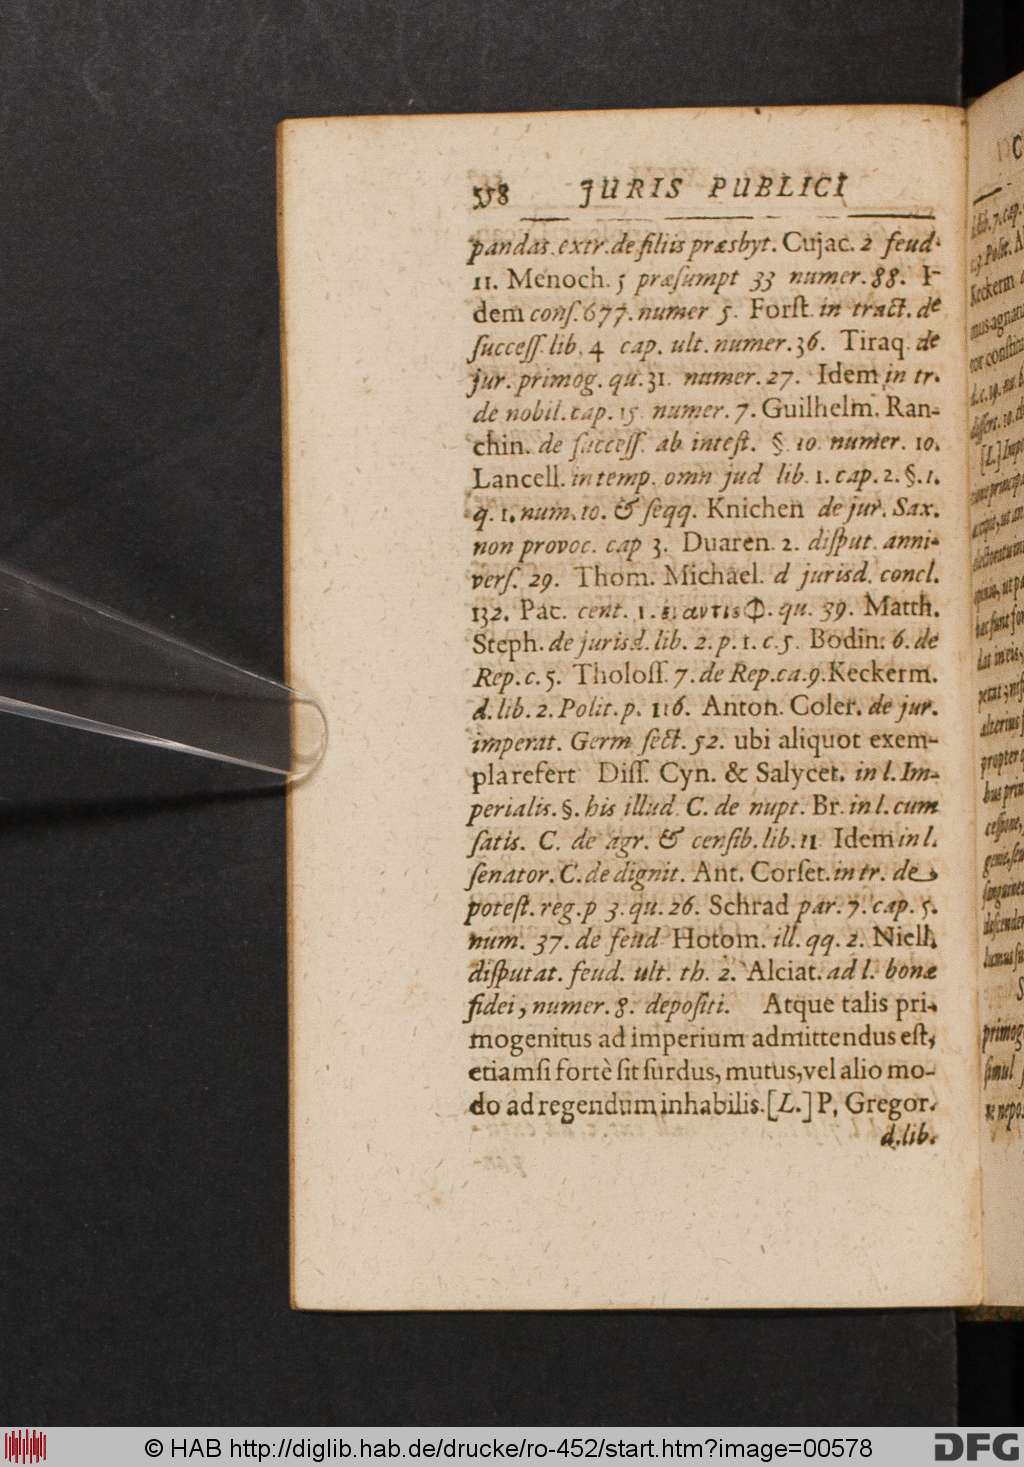 558 JURIS PUBLICI
pandas. extr. de filiis præsbyt. Cujac. 2 feud.
11. Menoch. 5 præsumpt 33 numer. 88. I-
dem cons. 677. numer 5. Forst. in tract. de
success. lib. 4 cap. ult. numer. 36. Tiraq. de
jur. primog. qu. 31. numer. 27. Idem in tr.
de nobil. cap. 15 numer. 7. Guilhelm. Ran-
chin. de success. ab intest. §. 10 numer. 10.
Lancell. in temp. omn jud lib. 1. cap. 2. §. 1.
q. 1. num. 10. & seqq. Knichen de jur. Sax.
non provoc. cap 3. Duaren. 2. disput. anni-
vers. 29. Thom. Michael. d jurisd. concl.
132. Pac. cent. 1. qu. 39. Matth.
Steph. de jurisd. lib. 2. p. 1. c. 5. Bodin. 6. de
Rep. c. 5. Tholoss. 7. de Rep. ca. 9. Keckerm.
d. lib. 2. Polit. p. 116. Anton. Coler. de jur.
imperat. Germ sect. 52. ubi aliquot exem-
pla refert Diss. Cyn. & Salycet. in l. Im-
perialis. §. his illud C. de nupt. Br. in l. cum
satis. C. de agr. & censib. lib. 11 Idem in l.
senator. C. de dignit. Ant. Corset. in tr. de
potest. reg. p 3. qu. 26. Schrad par. 7. cap. 5.
num. 37. de feud Hotom. ill. qq. 2. Niell.
disputat. feud. ult. th. 2. Alciat. ad l. bonæ
fidei, numer. 8. depositi. Atque talis pri-
mogenitus ad imperium admittendus est,
etiamsi fortè sit surdus, mutus, vel alio mo-
do ad regendum inhabilis. [L.] P. Gregor.
d. lib.
© HAB http://diglib.hab.de/drucke/ro-452/start.htm?image=00578
DFG